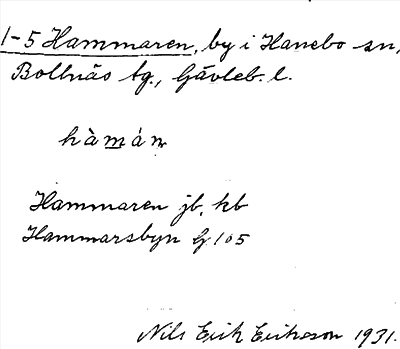 1-5 Hammaren, by i Hanebo sn,
Bollnäs tg., Gävleb. l.
hàmán
Hammaren jb, kb
Hammarsbyn G 105
Nils Erik Eriksson 1931.